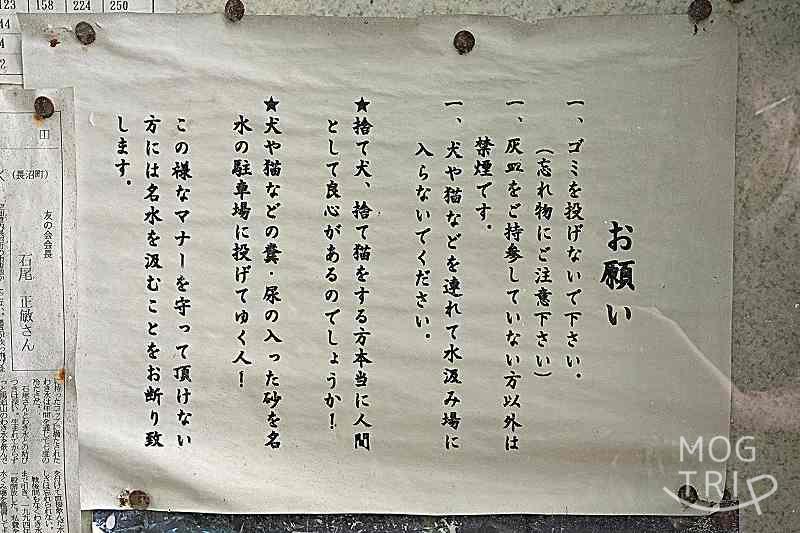 お願い
一、ゴミを投げないで下さい。
（忘れ物にご注意下さい）
一、灰皿をご持参していない方以外は
禁煙です。
一、犬や猫などを連れて水汲み場に
入らないでください。
★捨て犬、捨て猫をする方本当に人間
として良心があるのでしょうか！
★犬や猫などの糞・尿の入った砂を名
水の駐車場に投げてゆく人！
この様なマナーを守って頂けない
方には名水を汲むことをお断り致
します。
123 158 224 250
（長沼町）
友の会会長
石尾 正敏さん
MOG
TRIP